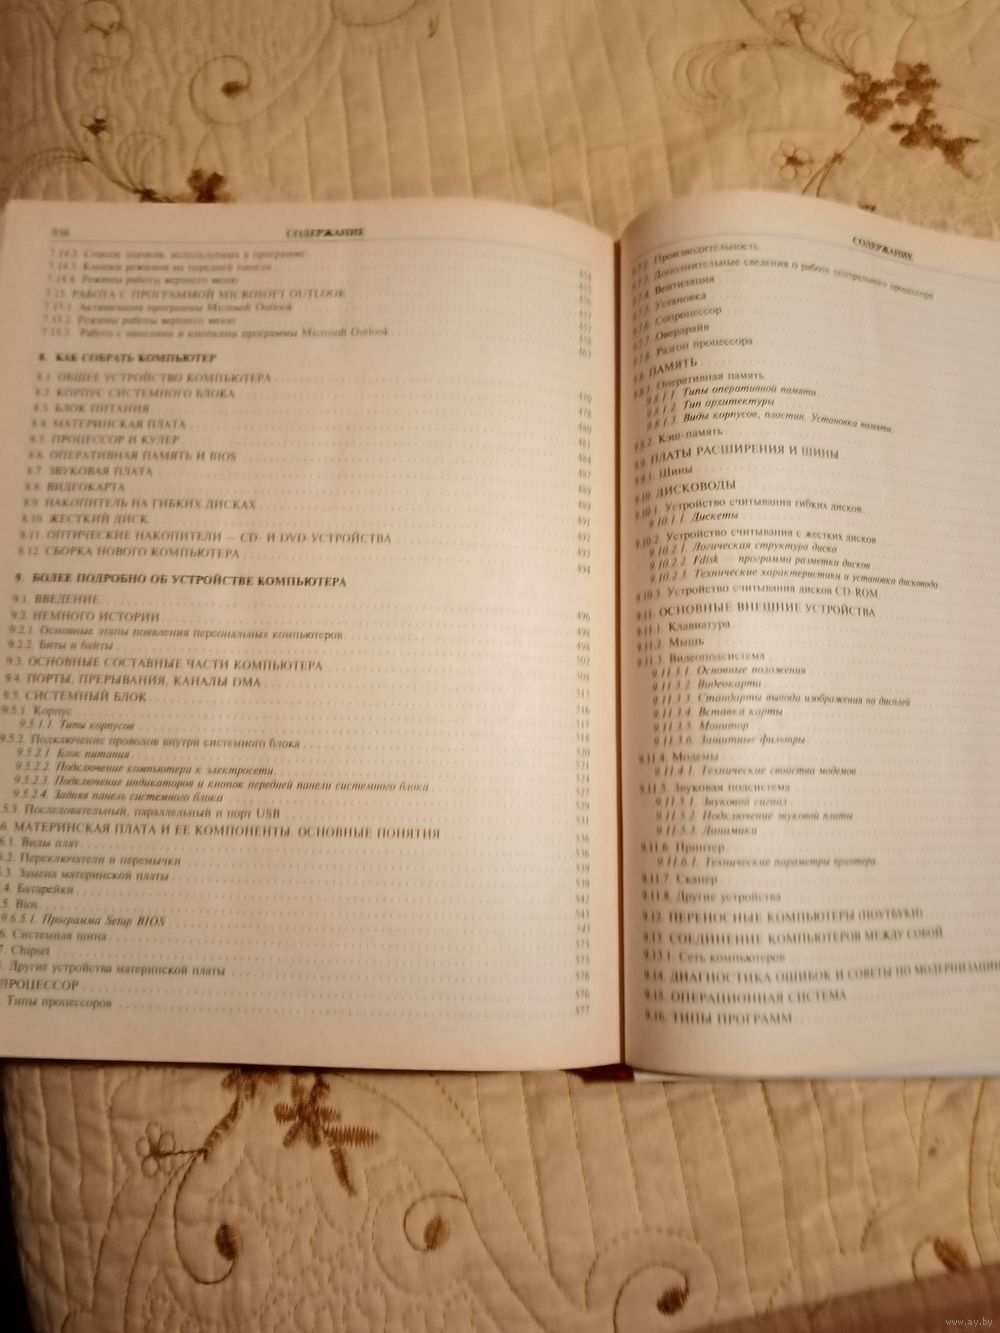 956 СОДЕРЖАНИЕ
7.14.2. Список значков, используемых в программе
7.14.3. Кнопки режимов на передней панели
7.14.4. Режимы работы верхнего меню
7.15. РАБОТА С ПРОГРАММОЙ MICROSOFT OUTLOOK
7.15.1. Активизация программы Microsoft Outlook
7.15.2. Режимы работы верхнего меню
7.15.3. Работа с панелями и кнопками программы Microsoft Outlook
8. КАК СОБРАТЬ КОМПЬЮТЕР
8.1. ОБЩЕЕ УСТРОЙСТВО КОМПЬЮТЕРА
8.2. КОРПУС СИСТЕМНОГО БЛОКА
8.3. БЛОК ПИТАНИЯ
8.4. МАТЕРИНСКАЯ ПЛАТА
8.5. ПРОЦЕССОР И КУЛЕР
8.6. ОПЕРАТИВНАЯ ПАМЯТЬ И BIOS
8.7. ЗВУКОВАЯ ПЛАТА
8.8. ВИДЕОКАРТА
8.9. НАКОПИТЕЛЬ НА ГИБКИХ ДИСКАХ
8.10. ЖЕСТКИЙ ДИСК
8.11. ОПТИЧЕСКИЕ НАКОПИТЕЛИ — CD- И DVD-УСТРОЙСТВА
8.12. СБОРКА НОВОГО КОМПЬЮТЕРА
9. БОЛЕЕ ПОДРОБНО ОБ УСТРОЙСТВЕ КОМПЬЮТЕРА
9.1. ВВЕДЕНИЕ
9.2. НЕМНОГО ИСТОРИИ
9.2.1. Основные этапы появления персональных компьютеров
9.2.2. Биты и байты
9.3. ОСНОВНЫЕ СОСТАВНЫЕ ЧАСТИ КОМПЬЮТЕРА
9.4. ПОРТЫ, ПРЕРЫВАНИЯ, КАНАЛЫ DMA
9.5. СИСТЕМНЫЙ БЛОК
9.5.1. Корпус
9.5.1.1. Типы корпусов
9.5.2. Подключение проводов внутри системного блока
9.5.2.1. Блок питания
9.5.2.2. Подключение компьютера к электросети
9.5.2.3. Подключение индикаторов и кнопок передней панели системного блока
9.5.2.4. Задняя панель системного блока
.5.3. Последовательный, параллельный и порт USB
6. МАТЕРИНСКАЯ ПЛАТА И ЕЕ КОМПОНЕНТЫ. ОСНОВНЫЕ ПОНЯТИЯ
6.1. Виды плат
6.2. Переключатели и перемычки
.3. Замена материнской платы
.4. Батарейки
.5. Bios
.9.6.5.1. Программа Setup BIOS
6. Системная шина
7. Chipset
. Другие устройства материнской платы
ПРОЦЕССОР
. Типы процессоров
СОДЕРЖАНИЕ
9.7.2. Производительность
9.7.3. Дополнительные сведения о работе центрального процессора
9.7.4. Вентиляция
9.7.5. Установка
9.7.6. Сопроцессор
9.7.7. Овердрайв
9.7.8. Разгон процессора
9.8. ПАМЯТЬ
9.8.1. Оперативная память
9.8.1.1. Типы оперативной памяти
9.8.1.2. Тип архитектуры
9.8.1.3. Виды корпусов, пластин. Установка памяти
9.8.2. Кэш-память
9.9. ПЛАТЫ РАСШИРЕНИЯ И ШИНЫ
9.9.1. Шины
9.10. ДИСКОВОДЫ
9.10.1. Устройство считывания гибких дисков
9.10.1.1. Дискеты
9.10.2. Устройство считывания с жестких дисков
9.10.2.1. Логическая структура диска
9.10.2.2. Fdisk — программа разметки дисков
9.10.2.3. Технические характеристики и установка дисковода
9.10.3. Устройство считывания дисков CD-ROM
9.11. ОСНОВНЫЕ ВНЕШНИЕ УСТРОЙСТВА
9.11.1. Клавиатура
9.11.2. Мышь
9.11.3. Видеоподсистема
9.11.3.1. Основные положения
9.11.3.2. Видеокарта
9.11.3.3. Стандарты вывода изображения на дисплей
9.11.3.4. Вставка карты
9.11.3.5. Монитор
9.11.3.6. Защитные фильтры
9.11.4. Модемы
9.11.4.1. Технические свойства модемов
9.11.5. Звуковая подсистема
9.11.5.1. Звуковой сигнал
9.11.5.2. Подключение звуковой платы
9.11.5.3. Динамики
9.11.6. Принтер
9.11.6.1. Технические параметры принтера
9.11.7. Сканер
9.11.8. Другие устройства
9.12. ПЕРЕНОСНЫЕ КОМПЬЮТЕРЫ (НОУТБУКИ)
9.13. СОЕДИНЕНИЕ КОМПЬЮТЕРОВ МЕЖДУ СОБОЙ
9.13.1. Сеть компьютеров
9.14. ДИАГНОСТИКА ОШИБОК И СОВЕТЫ ПО МОДЕРНИЗАЦИИ
9.15. ОПЕРАЦИОННАЯ СИСТЕМА
9.16. ТИПЫ ПРОГРАММ
www.ay.by